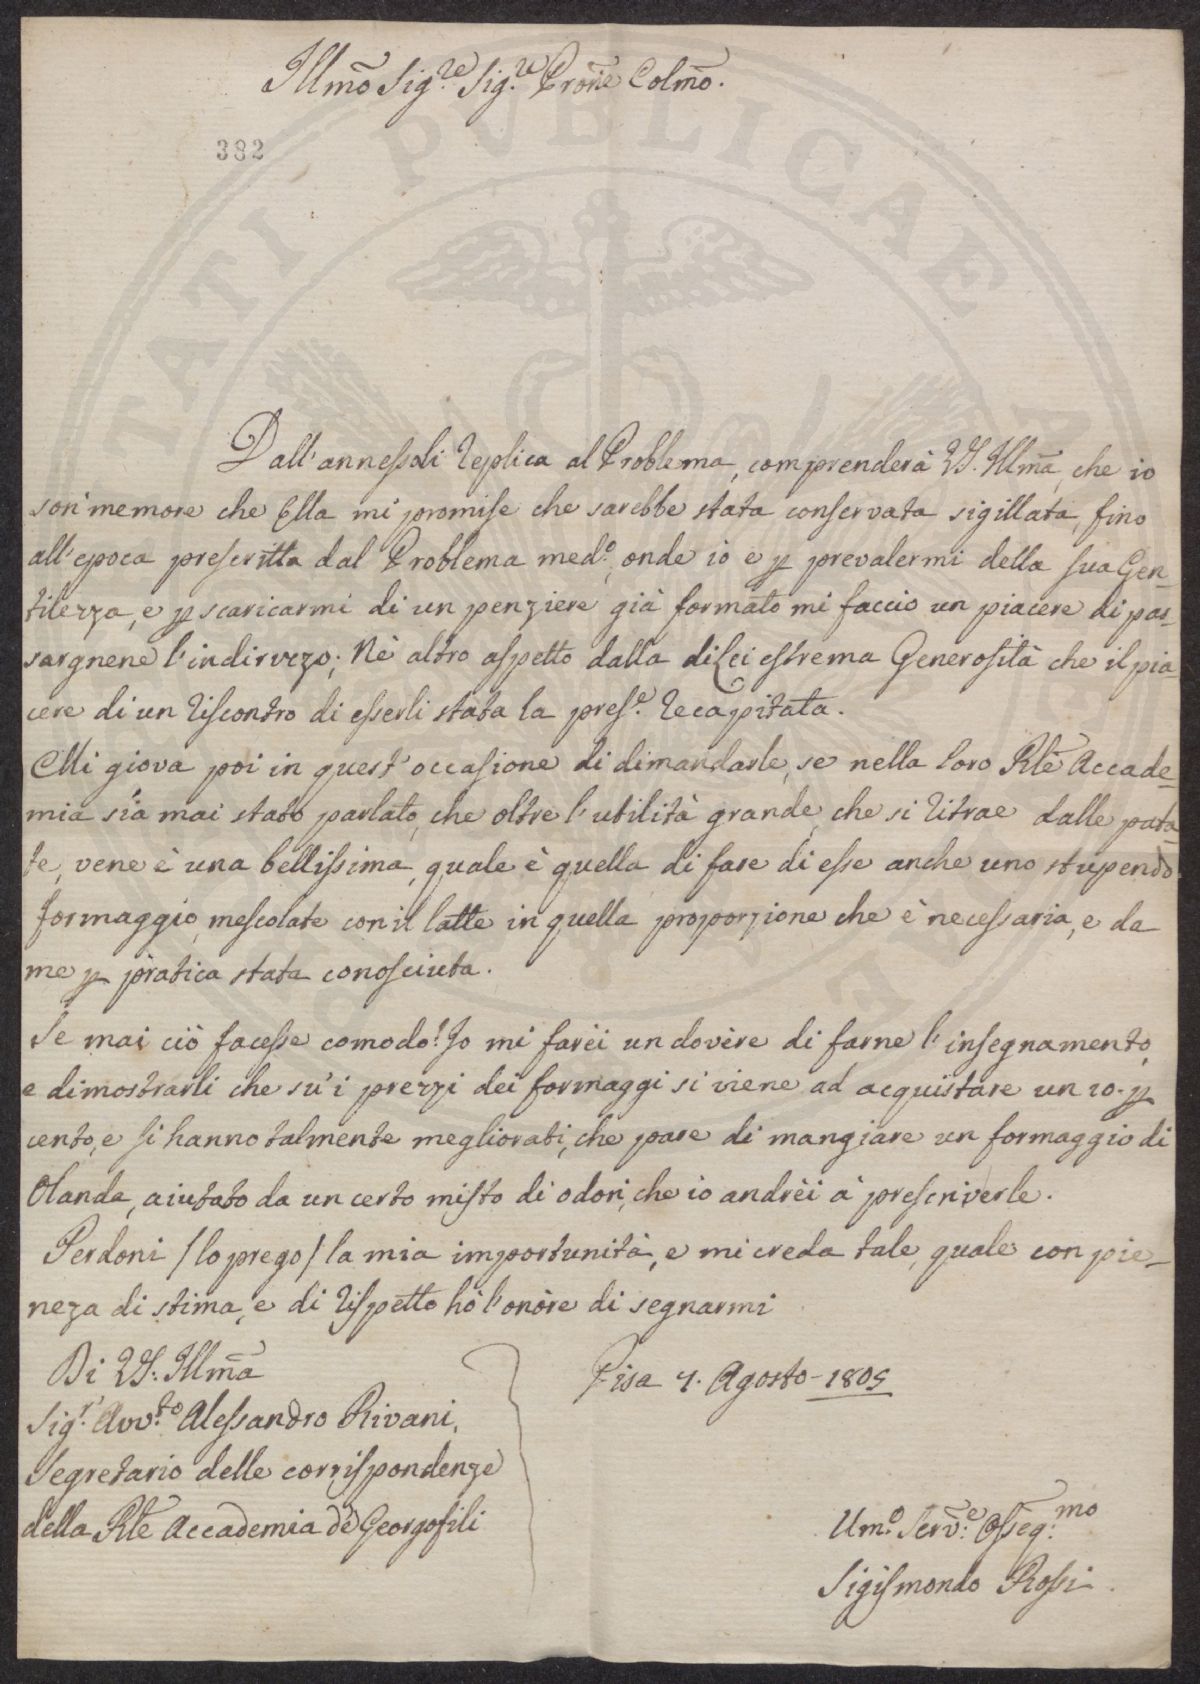 Illmo Sig.re Sig.re Prone Colmo.
382
Dall'annessoli replica al Problema, comprenderà VS. Illma, che io
son memore che Ella mi promise che sarebbe stata conservata sigillata, fino
all'epoca prescritta dal Problema med.o, onde io e p prevalermi della sua Gen-
tilezza, e p scaricarmi di un penziere già formato mi faccio un piacere di pas-
sargnene l'indirizzo; Nè altro aspetto dalla di Lei estrema Generosità che il pia-
cere di un riscontro di esserli stata la pres.e recapitata.
Mi giova poi in quest'occasione di dimandarle, se nella loro Rle Accade-
mia sia mai stato parlato, che oltre l'utilità grande, che si ritrae dalle pata-
te, vene è una bellissima, quale è quella di fare di esse anche uno stupendo
formaggio, mescolate con il latte in quella proporzione che è necessaria, e da
me p pratica stata conosciuta.
Se mai ciò facesse comodo! Io mi farèi un dovère di farne l'insegnamento,
e dimostrarli che su'i prezzi dei formaggi si viene ad acquistare un 10. p
cento, e si hanno talmente megliorati, che pare di mangiare un formaggio di
Olanda, aiutato da un certo misto di odori, che io andrèi à prescriverle.
Perdoni /lo prego/ la mia importunità, e mi creda tale, quale con pie-
neza di stima, e di rispetto hò l'onòre di segnarmi
Di VS. Illma
Sig.r Avv.to Alessandro Rivani,
Segretario delle corrispondenze
della Rle Accademia de Georgofili
Pisa 7. Agosto - 1805
Um.o Serv.e Osseq.mo
Sigismondo Rossi